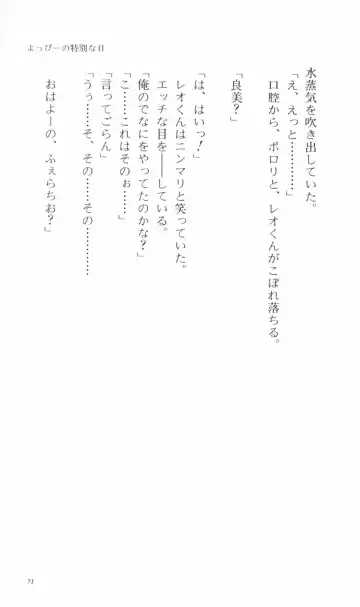 よっぴーの特別な日
水蒸気を吹き出していた。
「え、えっと…………」
口腔から、ポロリと、レオくんがこぼれ落ちる。
「良美?」
「は、はいっ!」
レオくんはニンマリと笑っていた。
エッチな目を――している。
「俺のでなにをやってたのかな?」
「こ……これはそのぉ……」
「言ってごらん」
「うぅ……そ、その……その……………
おはよーの、ふぇらちお?」
71